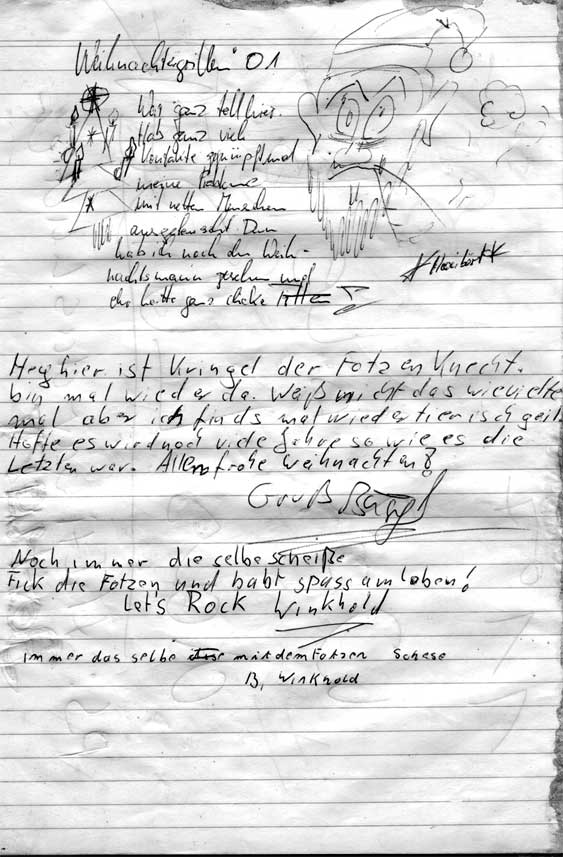 Weihnachtsgrillen' 01
War ganz toll hier.
Hab ganz viel
Kontakte geknüpft und
meine
mit netten Menschen
ausgetauscht Dann
hab ich noch den Weih-
nachtsmann gesehen und
der hatte ganz dicke
Hey hier ist Kringel der Fotzenknecht.
bin mal wieder da. Weiß nicht das wievielte
mal aber ich finds mal wieder tierisch geil.
Hoffe es wird noch viele Jahre so wie es die
Letzten war. Allen frohe Weihnachten
Gruß
Noch immer die selbe scheiße
Fick die Fotzen und habt spass am leben!
Let's Rock Winkhold
immer das selbe mit dem Fotzen Schese
B, Winkhold